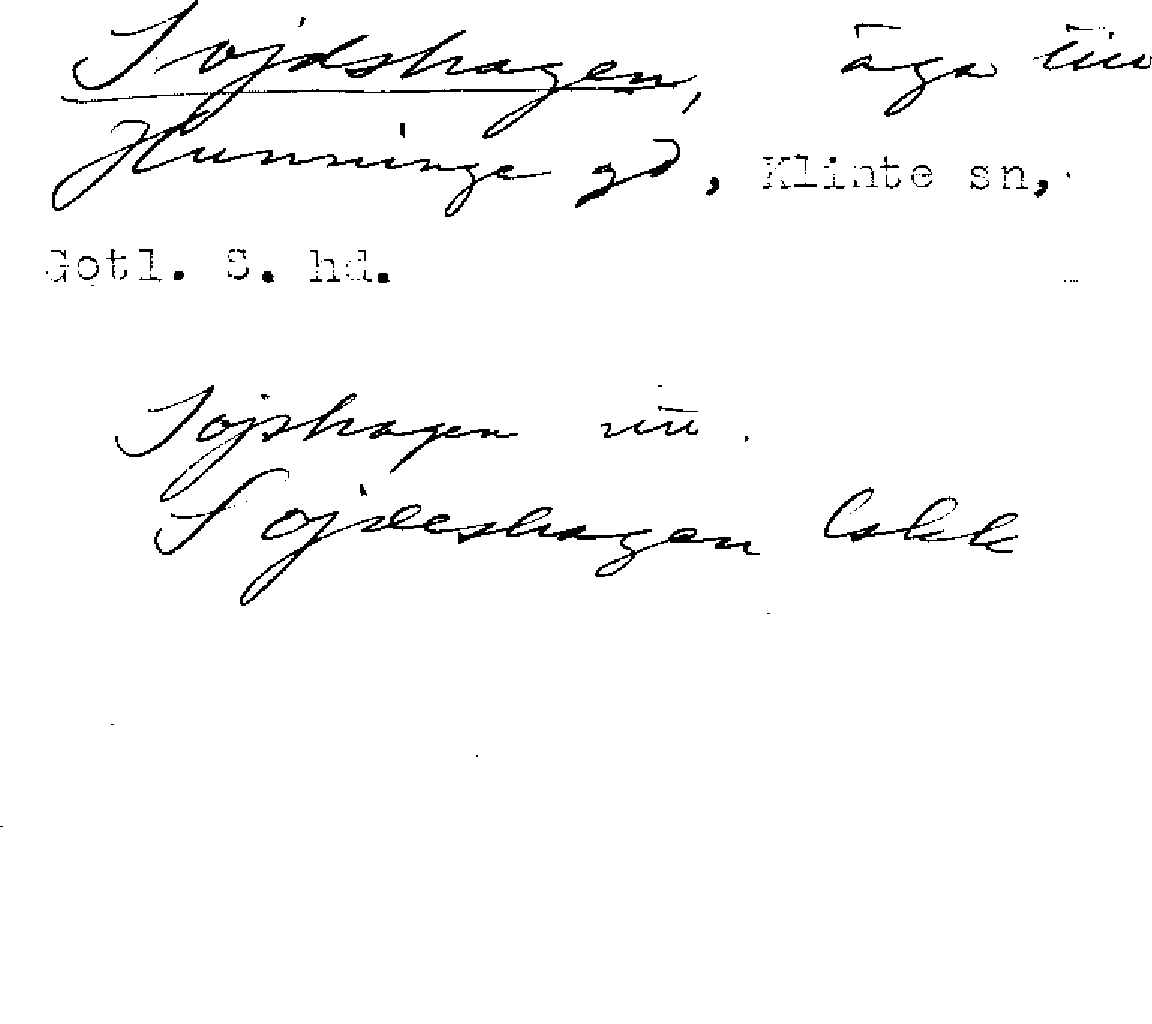 Sojdshagen, äga till
Hunninge gd, Klinte sn,
Gotl. S. hd.
Sojshagen
Sojdeshagen